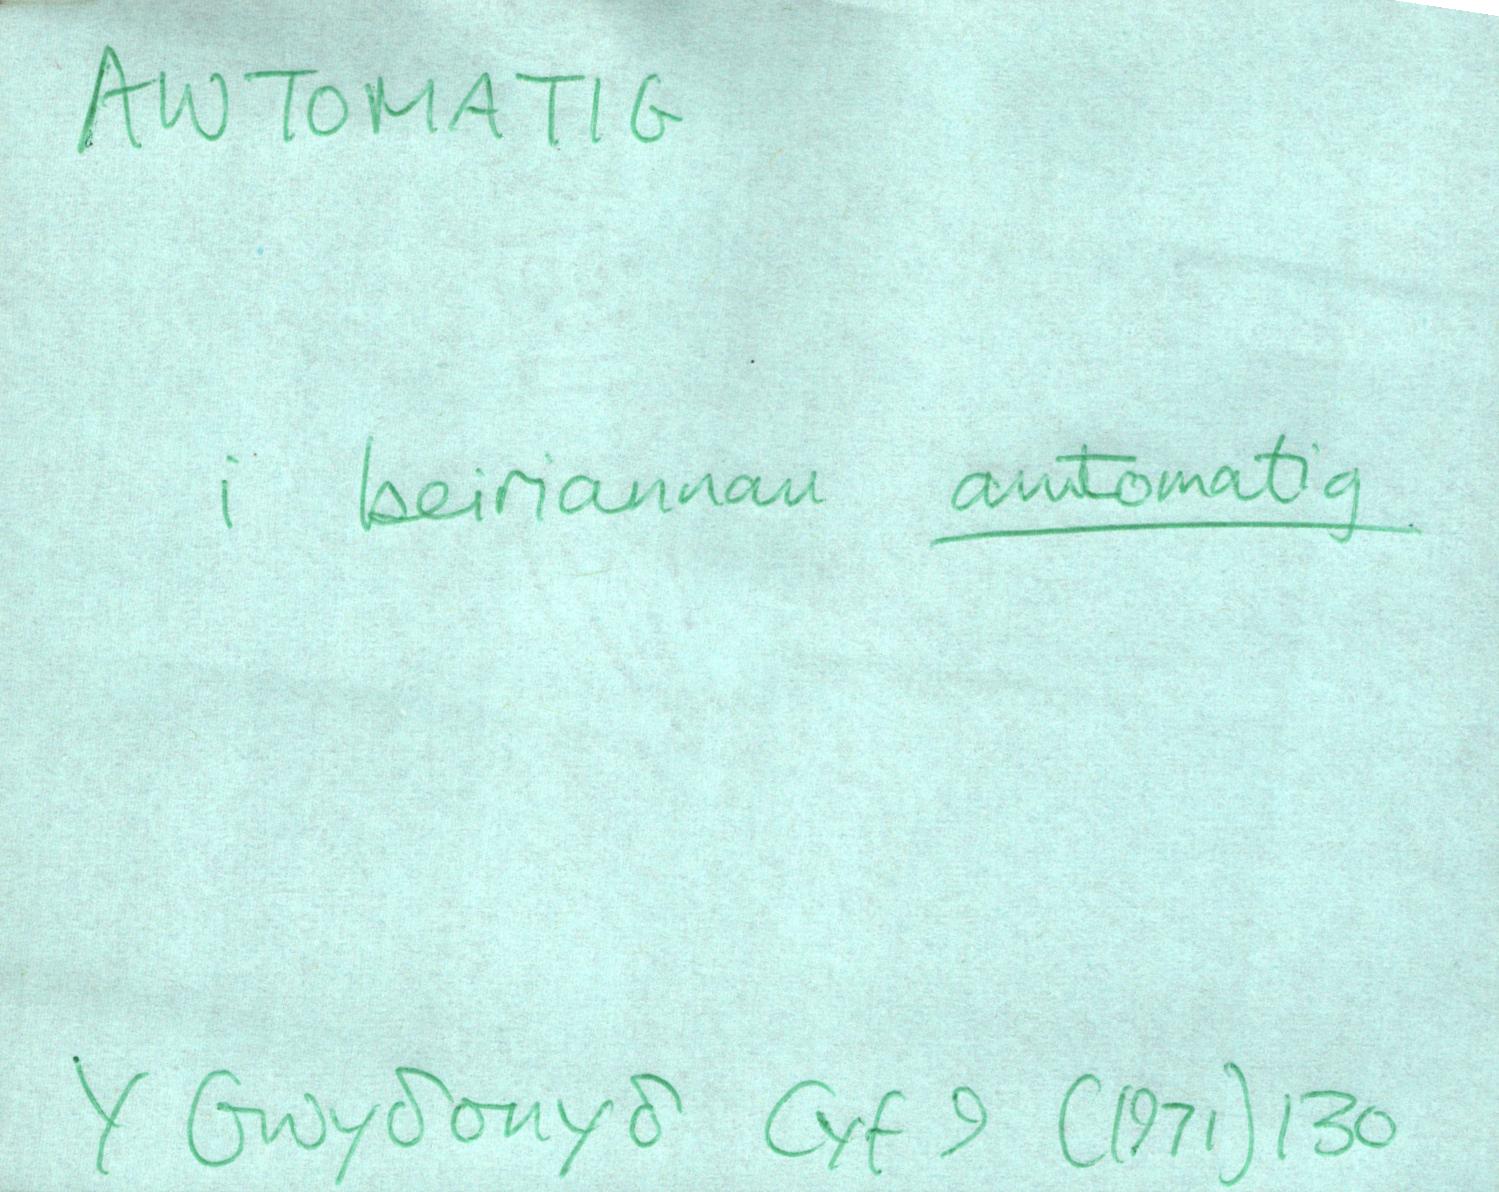 AWTOMATIG
i beiriannau awtomatig
Y Gwyδonyδ Cyf 9 (1971) 130